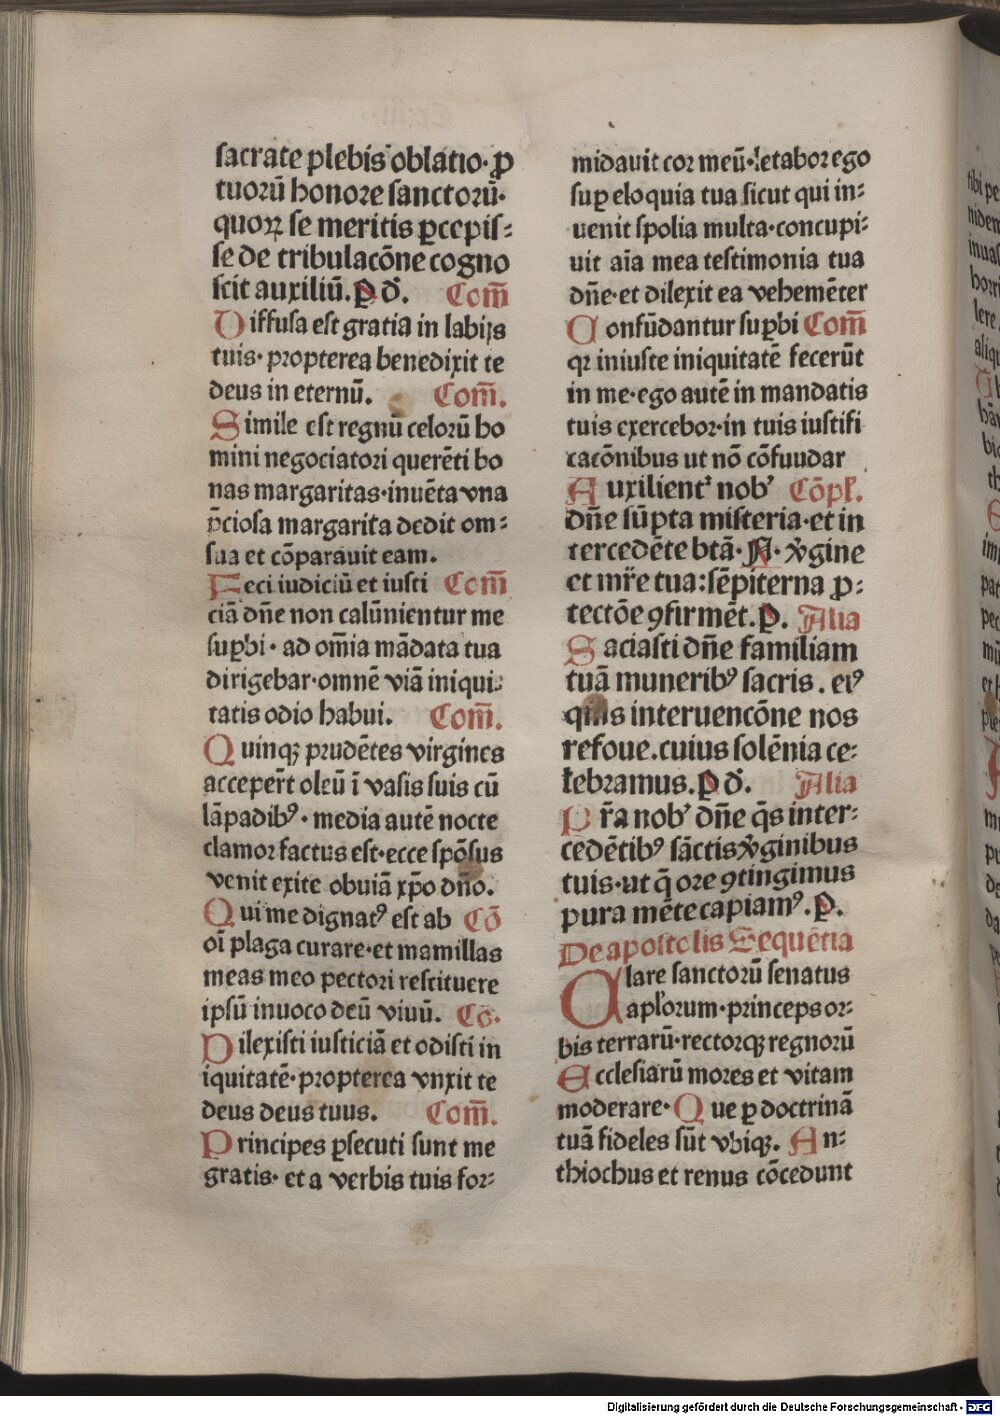 sacrate plebis oblatio· ꝓ
tuorū honore sanctorū·
quoꝝ se meritis ꝑcepis⸗
se de tribulacōne cogno
scit auxiliū. P d̄. Com̄
Diffusa est gratia in labijs
tuis· propterea benedixit te
deus in eternū. Com̄.
Simile est regnū celorū ho
mini negociatori querēti bo
nas margaritas·inuēta vna
p̄ciosa margarita dedit om⸗
sua et cōparauit eam.
Feci iudiciū et iusti Com̄
ciā dn̄e non calūnientur me
suꝑbi· ad om̄ia mādata tua
dirigebar·omnē viā iniqui⸗
tatis odio habui. Com̄.
Quinqꝫ prudētes virgines
acceper̄t oleū ī vasis suis cū
lāpadibꝰ· media autē nocte
clamor factus est·ecce spōsus
venit exite obuiā xp̄o dn̄o.
Qui me dignatꝰ est ab Cō
oī plaga curare·et mamillas
meas meo pectori restituere
ipsū inuoco deū viuū. Co.
Dilexisti iusticiā et odisti in
iquitatē·propterea vnxit te
deus deus tuus. Com̄.
Principes ꝑsecuti sunt me
gratis· et a verbis tuis for⸗
midauit cor meū·letabor ego
suꝑ eloquia tua sicut qui in⸗
uenit spolia multa·concupi⸗
uit aīa mea testimonia tua
dn̄e·et dilexit ea vehemēter
Confūdantur suꝑbi Com̄
qꝛ iniuste iniquitatē fecerūt
in me·ego autē in mandatis
tuis exercebor·in tuis iustifi
cacōnibus ut nō cōfuudar
Auxilientᷣ nobᷤ Cōpl̄.
dn̄e sūpta misteria·et in
tercedēte btā· N· v̄gine
et mr̄e tua: sēpiterna ꝓ⸗
tectōe ꝯfirmēt. P. Alia
Saciasti dn̄e familiam
tuā muneribꝰ sacris. eiꝰ
qūs interuencōne nos
refoue.cuius solēnia ce⸗
lebramus. P d̄. Alia
Pr̄a nobᷤ dn̄e q̄s inter⸗
cedētibꝰ sāctis v̄ginibus
tuis·ut q̄ ore ꝯtingimus
pura mēte capiamꝰ. P.
De apostolis Sequētia
Clare sanctorū senatus
apl̄orum·princeps or⸗
bis terrarū·rectorqꝫ regnorū
Ecclesiarū mores et vitam
moderare· Que ꝑ doctrinā
tuā fideles sūt vbiqꝫ. An⸗
thiochus et renus cōcedunt
Digitalisierung gefördert durch die Deutsche Forschungsgemeinschaft - DFG